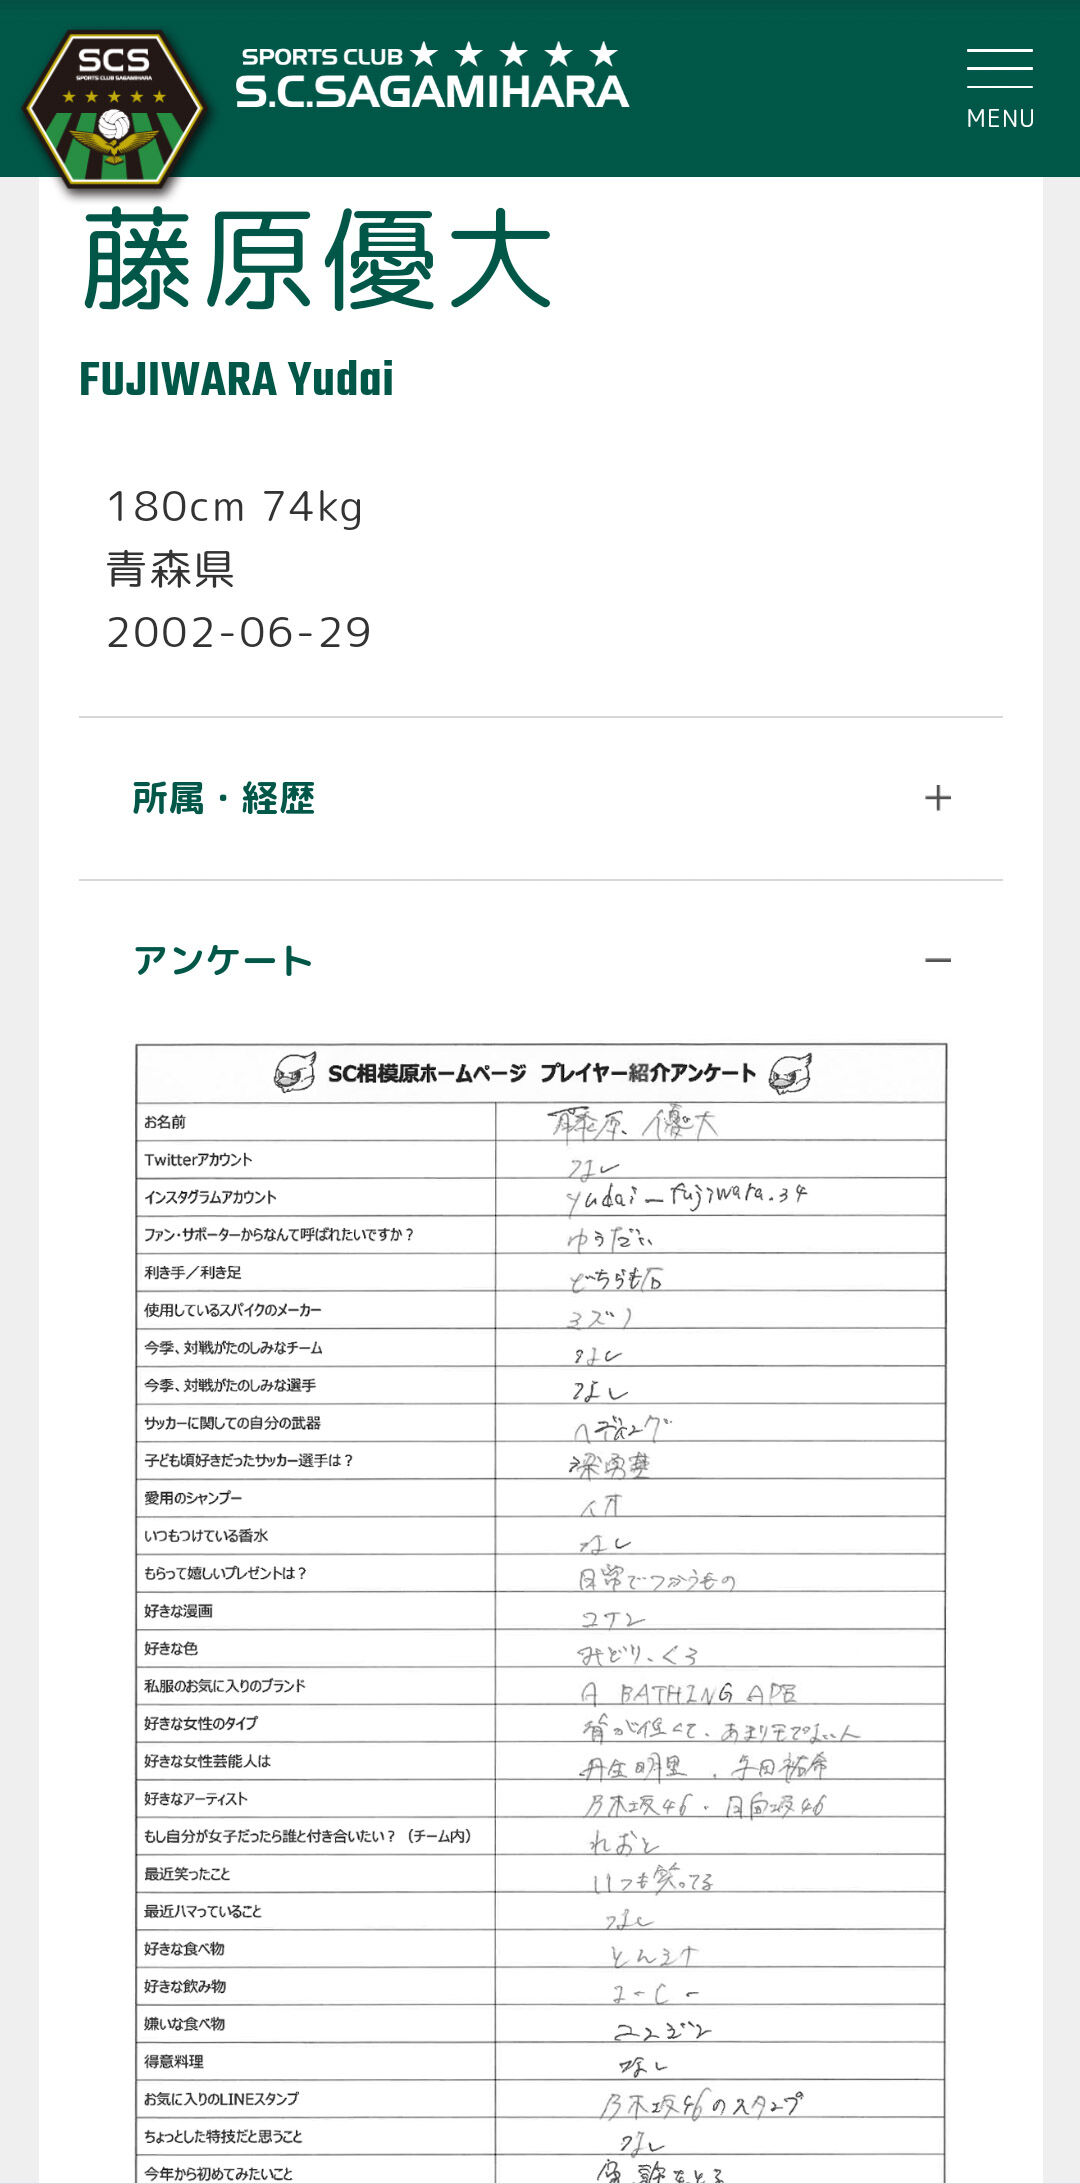 SCS
SPORTS CLUB SAGAMIHARA
SPORTS CLUB ★★★★★
S.C.SAGAMIHARA
MENU
藤原優大
FUJIWARA Yudai
180cm 74kg
青森県
2002-06-29
所属・経歴
アンケート
SC相模原ホームページ プレイヤー紹介アンケート
お名前 藤原 優大
Twitterアカウント なし
インスタグラムアカウント yudai_fujiwara.34
ファン・サポーターからなんて呼ばれたいですか? ゆうだい
利き手/利き足 どちらも右
使用しているスパイクのメーカー ミズノ
今季、対戦がたのしみなチーム なし
今季、対戦がたのしみな選手 なし
サッカーに関しての自分の武器 ヘディング
子ども頃好きだったサッカー選手は? 梁勇基
愛用のシャンプー
いつもつけている香水 なし
もらって嬉しいプレゼントは? 日常でつかうもの
好きな漫画 コナン
好きな色 みどり、くろ
私服のお気に入りのブランド A BATHING APE
好きな女性のタイプ 背が低くて、あまりモテない人
好きな女性芸能人は 丹生明里、与田祐希
好きなアーティスト 乃木坂46・日向坂46
もし自分が女子だったら誰と付き合いたい?(チーム内) れおと
最近笑ったこと いつも笑ってる
最近ハマっていること なし
好きな食べ物 とんこつ
好きな飲み物 コーヒー
嫌いな食べ物
得意料理 なし
お気に入りのLINEスタンプ 乃木坂46のスタンプ
ちょっとした特技だと思うこと なし
今年から初めてみたいこと 免許をとる